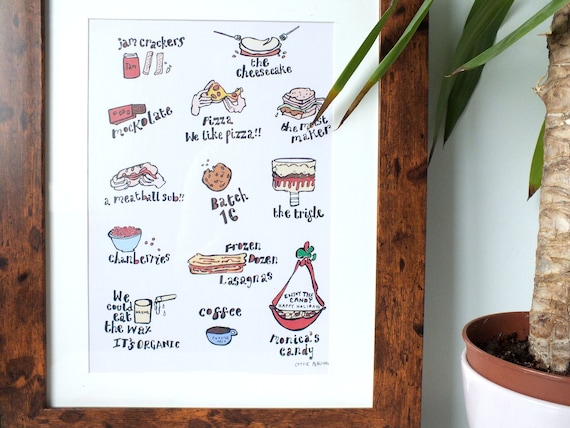 jam crackers
Jam
the
cheesecake
mockolate
Pizza
We like pizza!!
the moist
maker
a meatball sub!!
Batch
16
the trifle
chanberries
Frozen
Dozen
Lasagnas
We
could
eat
the wax
IT'S ORGANIC
coffee
ENJOY THE
CANDY
HAPPY HOLIDAYS
Monica's
Candy